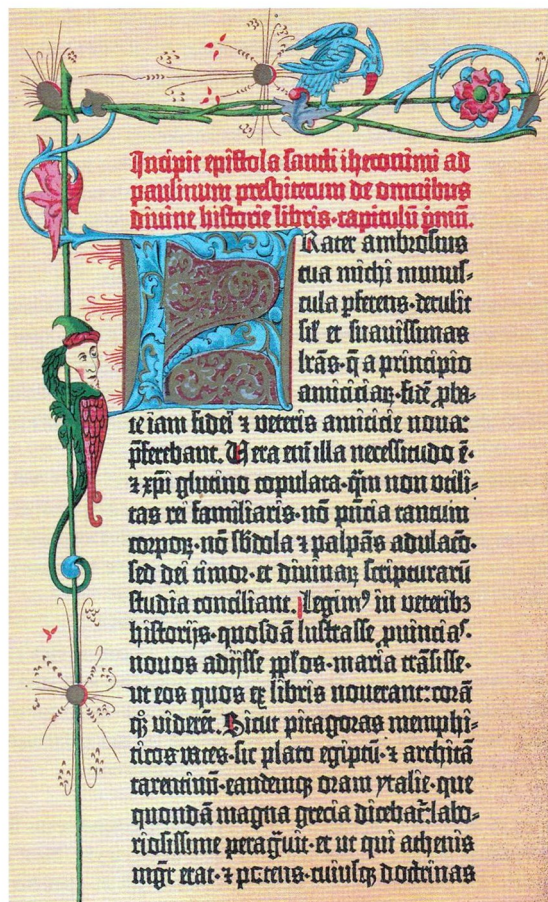 Incipit epistola sancti iheronimi ad
paulinum presbiterum de omnibus
divine historie libris·capitulū pmū.
Frater ambrosius
tua michi munus-
cula pferens·detulit
sil' et suavissimas
lrās·q̄ a principio
amiciciaꝝ·fidē pba-
te iam fidei ⁊ veteris amicicie nova:
pferebant. Vera eni illa necessitudo ē·
⁊ xpi glutino copulata·qm̄ non utili-
tas rei familiaris·nō pn̄cia tantum
corpoꝝ·nō sbdola ⁊ palpās adulacō·
sed dei timor·et divinaꝝ scripturarū
studia conciliant. Legim⁹ in veteribꝫ
historijs·quosdā lustrasse puincias·
novos adijsse pplos·maria trāsisse·
ut eos quos ex libris noverant: corā
qꝫ viderēt. Sicut pitagoras memphi-
ticos vates·sic plato egiptū·⁊ architā
tarentinū·eandemqꝫ oram ytalie·que
quondā magna grecia dicebat̄: labo-
riosissime peragᷓvit·et ut qui athenis
mgr̄ erat·⁊ potens·cuiusqꝫ doctrinas